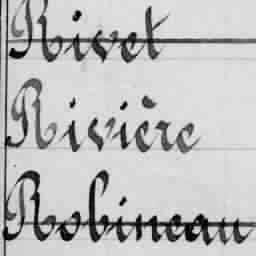 Rivet
Rivière
Robineau